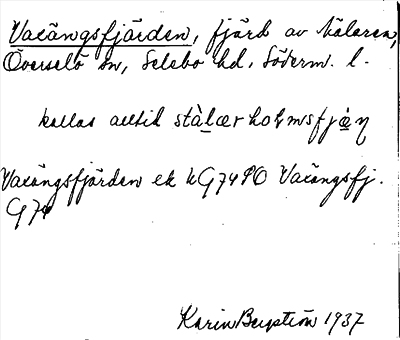 Vaeängsfjärden, fjärd av Mälaren,
Överselö sn, Selebo hd. Söderm. l.
kallas alltid stàlærholmsfjæ̣ṇ
Vaeängsfjärden ek hG74SO Vaeängsfj.
G74
Karin Bergström 1937